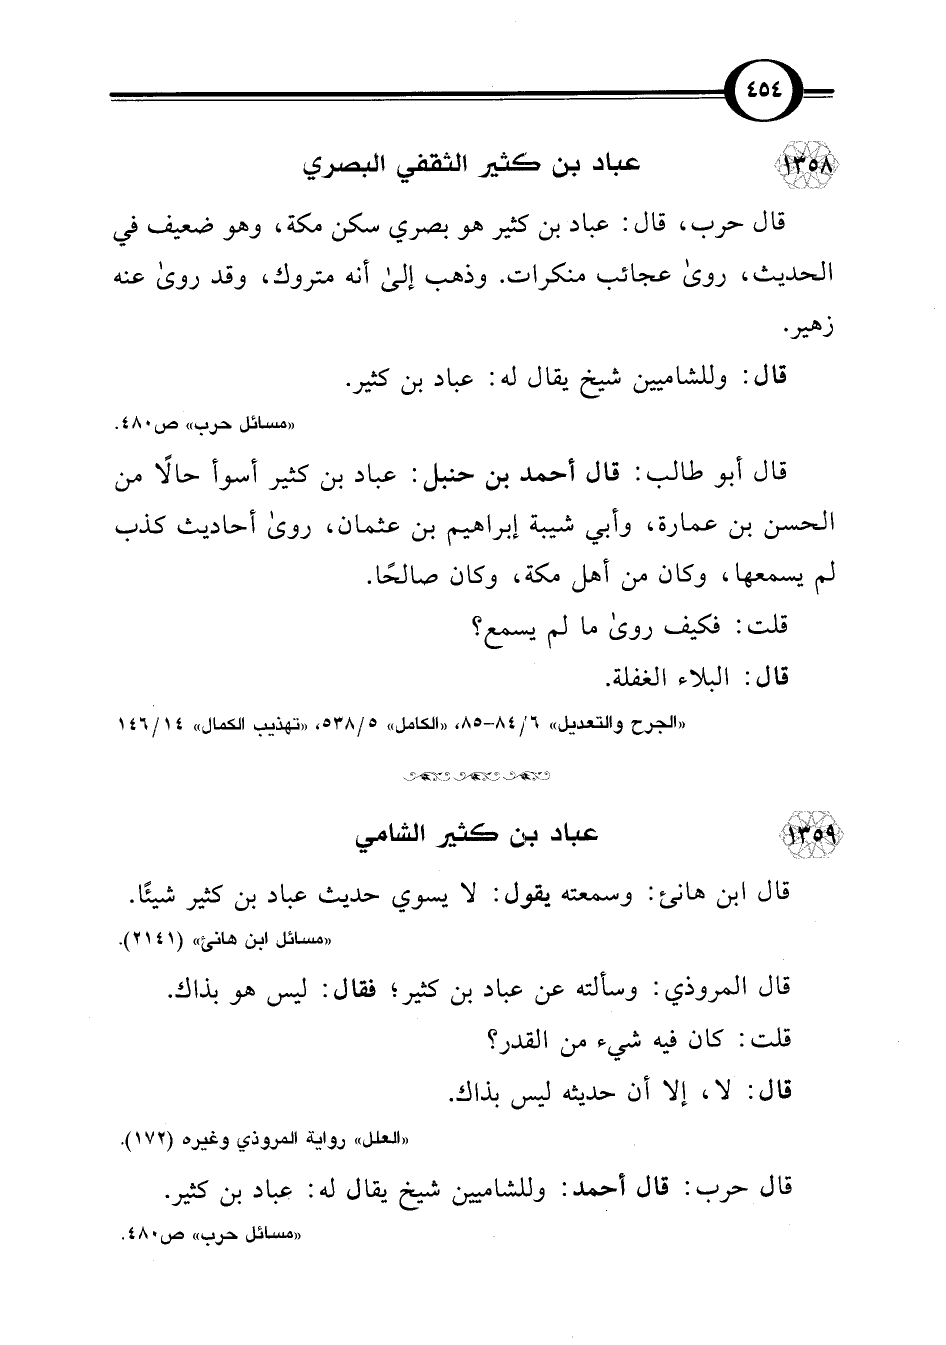 ٤٥٤
١٣٥٨ عباد بن كثير الثقفي البصري
قال حرب، قال: عباد بن كثير هو بصري سكن مكة، وهو ضعيف في
الحديث، روىٰ عجائب منكرات. وذهب إلىٰ أنه متروك، وقد روىٰ عنه
زهير.
قال: وللشاميين شيخ يقال له: عباد بن كثير.
«مسائل حرب» ص٤٨٠.
قال أبو طالب: قال أحمد بن حنبل: عباد بن كثير أسوأ حالًا من
الحسن بن عمارة، وأبي شيبة إبراهيم بن عثمان، روىٰ أحاديث كذب
لم يسمعها، وكان من أهل مكة، وكان صالحًا.
قلت: فكيف روىٰ ما لم يسمع؟
قال: البلاء الغفلة.
«الجرح والتعديل» ٦/ ٨٤-٨٥، «الكامل» ٥/ ٥٣٨، «تهذيب الكمال» ١٤/ ١٤٦
١٣٥٩ عباد بن كثير الشامي
قال ابن هانئ: وسمعته يقول: لا يسوي حديث عباد بن كثير شيئًا.
«مسائل ابن هانئ» (٢١٤١).
قال المروذي: وسألته عن عباد بن كثير؛ فقال: ليس هو بذاك.
قلت: كان فيه شيء من القدر؟
قال: لا، إلا أن حديثه ليس بذاك.
«العلل» رواية المروذي وغيره (١٧٢).
قال حرب: قال أحمد: وللشاميين شيخ يقال له: عباد بن كثير.
«مسائل حرب» ص٤٨٠.